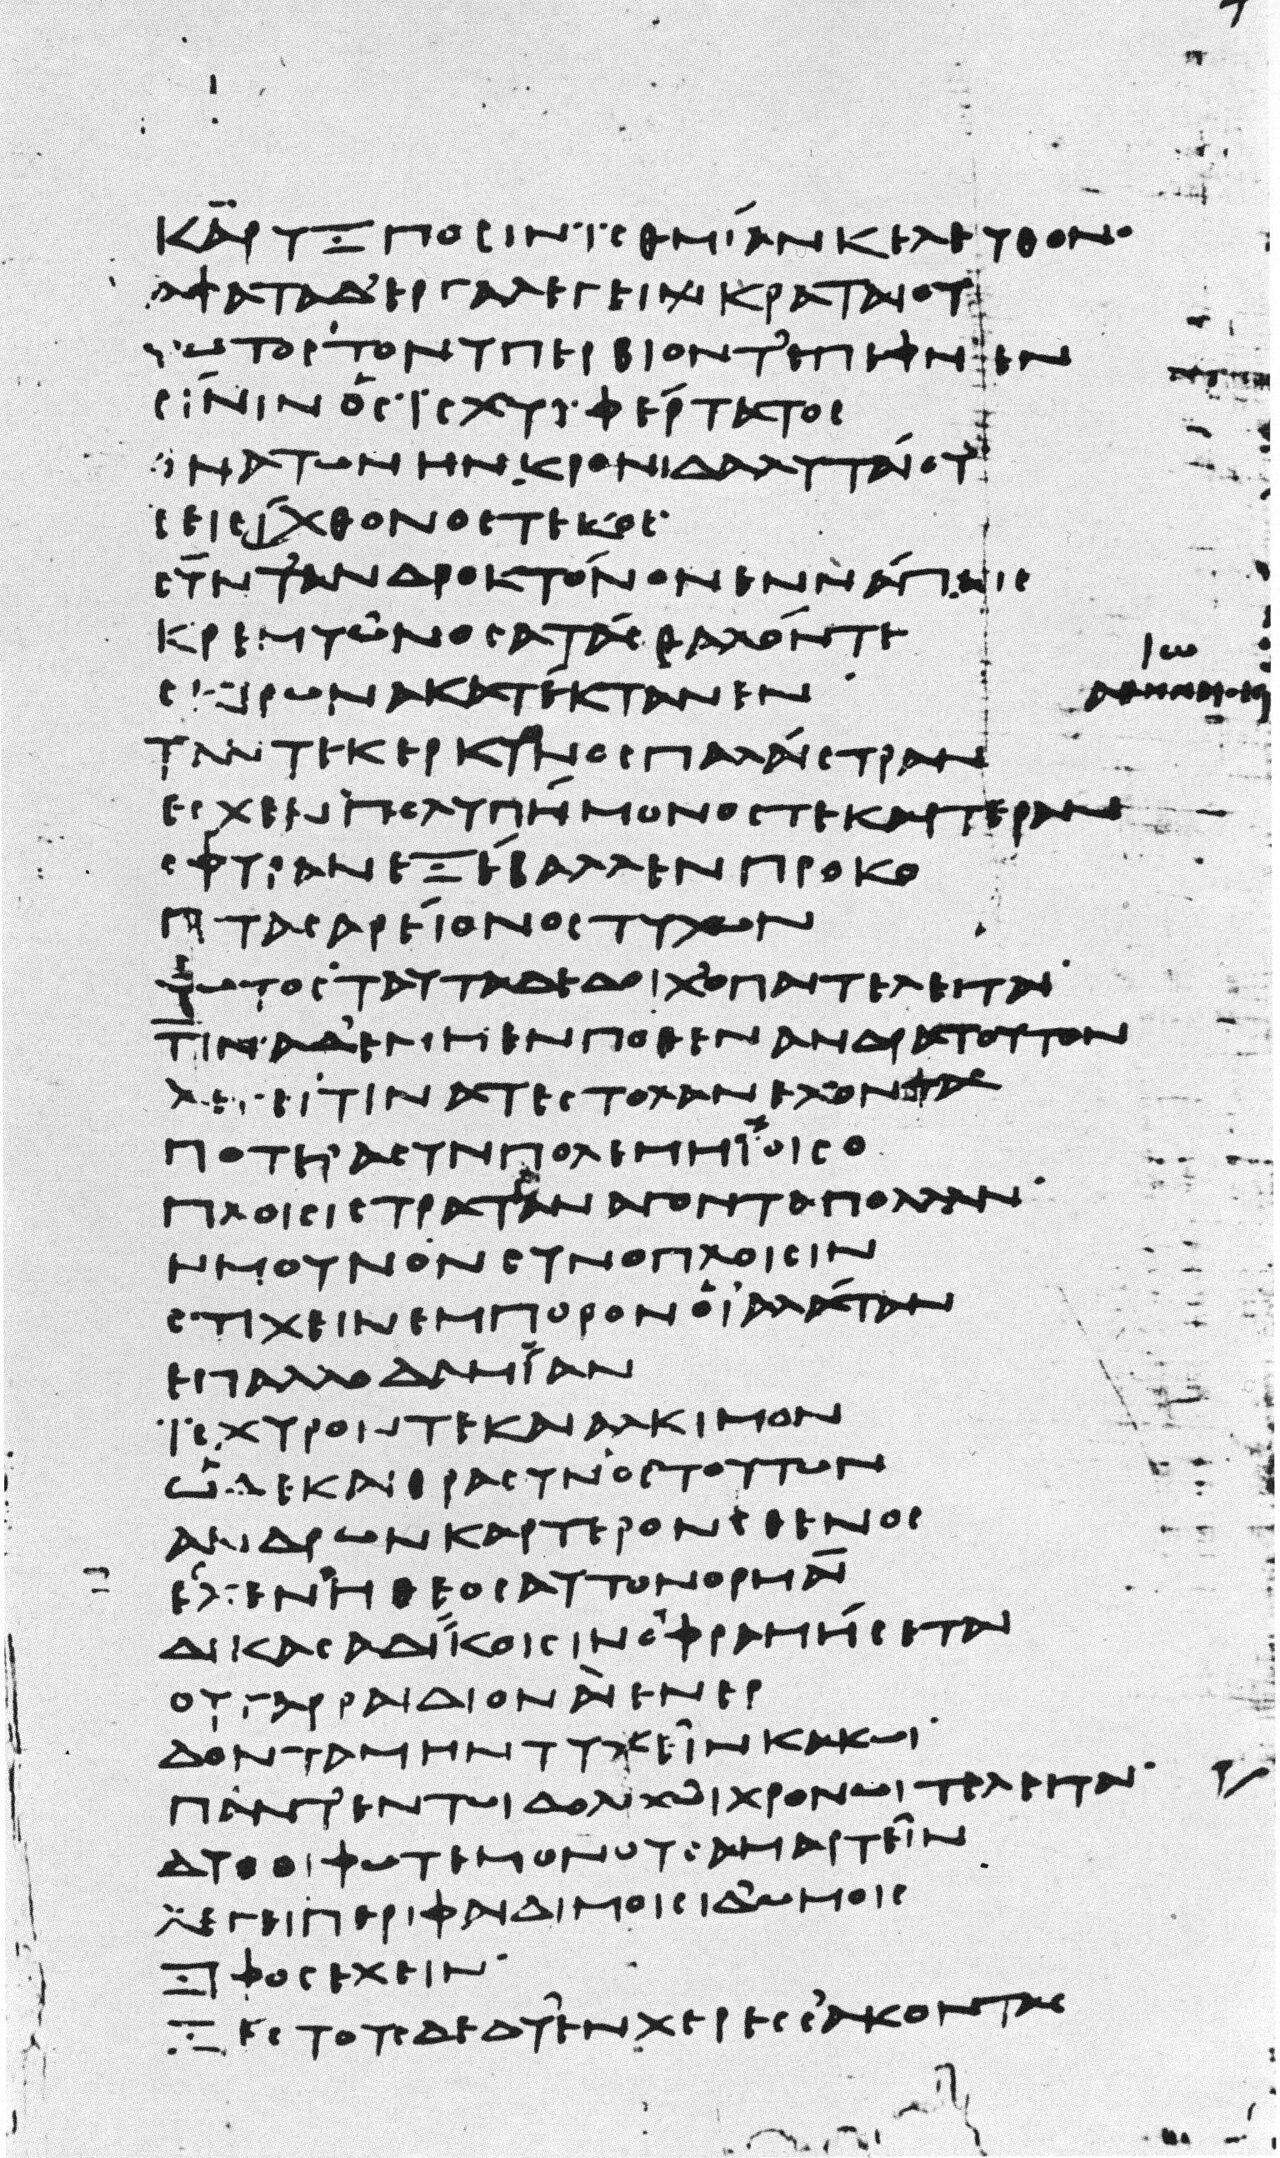 ΚΑΡΥΞΠΟϹΙΝΙϹΘΜΙΑΝΚΕΛΕΥΘΟΝ
ΑΦΑΤΑΔΕΡΓΑΛΕΓΕΙΚΡΑΤΑΙΟΥ
ΦΩΤΟϹΤΟΝΥΠΕΡΒΙΟΝΤΕΠΕΦΝΕΝ
ϹΙΝΙΝΟϹΙϹΧΥΙΦΕΡΤΑΤΟϹ
ΘΝΑΤΩΝΗΝΚΡΟΝΙΔΑΛΥΤΑΙΟΥ
ϹΕΙϹΙΧΘΟΝΟϹΤΕΚΟϹ
ϹΥΝΤΑΝΔΡΟΚΤΟΝΟΝΕΝΝΑΠΑΙϹ
ΚΡΕΜΥΩΝΟϹΑΤΑϹΘΑΛΟΝΤΕ
ϹΚΙΡΩΝΑΚΑΤΕΚΤΑΝΕΝ
ΤΑΝΤΕΚΕΡΚΥΟΝΟϹΠΑΛΑΙϹΤΡΑΝ
ΕϹΧΕΝΠΟΛΥΠΗΜΟΝΟϹΤΕΚΑΡΤΕΡΑΝ
ϹΦΥΡΑΝΕΞΕΒΑΛΛΕΝΠΡΟΚΟ
ΠΤΑϹΑΡΕΙΟΝΟϹΤΥΧΩΝ
ΦΩΤΟϹΤΑΥΤΑΔΕΔΟΙΧΟΠΑΙΤΕΛΕΙΤΑΙ
ΤΙΝΑΔΕΜΜΕΝΠΟΘΕΝΑΝΔΡΑΤΟΥΤΟΝ
ΛΕΓΕΙΤΙΝΑΤΕϹΤΟΛΑΝΕΧΟΝΤΑ
ΠΟΤΕΡΑϹΥΝΠΟΛΕΜΗΙΟΙϹΟ
ΠΛΟΙϹΙϹΤΡΑΤΙΑΝΑΓΟΝΤΑΠΟΛΛΑΝ
ΗΜΟΥΝΟΝϹΥΝΟΠΛΟΙϹΙΝ
ϹΤΙΧΕΙΝΕΜΠΟΡΟΝΟΙΑΛΑΤΑΝ
ΕΠΑΛΛΟΔΑΜΙΑΝ
ΙϹΧΥΡΟΝΤΕΚΑΙΑΛΚΙΜΟΝ
ΩΔΕΚΑΙΘΡΑϹΥΝΟϹΤΟΥΤΩΝ
ΑΝΔΡΩΝΚΑΡΤΕΡΟΝϹΘΕΝΟϹ
ΕϹΧΕΝΗΘΕΟϹΑΥΤΟΝΟΡΜΑΙ
ΔΙΚΑϹΑΔΙΚΟΙϹΙΝΟΦΡΑΜΗϹΕΤΑΙ
ΟΥΓΑΡΡΑΙΔΙΟΝΑΙΕΝΕΡ
ΔΟΝΤΑΜΗΝΤΥΧΕΙΝΚΑΚΩΙ
ΠΑΝΤΕΝΤΩΙΔΟΛΙΧΩΙΧΡΟΝΩΙΤΕΛΕΙΤΑΙ
ΔΥΟΟΙΦΩΤΕΜΟΝΟΥϹΑΜΑΡΤΕΙΝ
ΛΕΓΕΙΠΕΡΙΦΑΙΔΙΜΟΙϹΙΔΩΜΟΙϹ
ΞΙΦΟϹΕΧΕΙΝ
ΞΕϹΤΟΥϹΔΕΔΥΕΝΧΕΡΕϹϹΑΚΟΝΤΑϹ
ΙΩ
ΑΘΗΝΑΙΟΙϹ